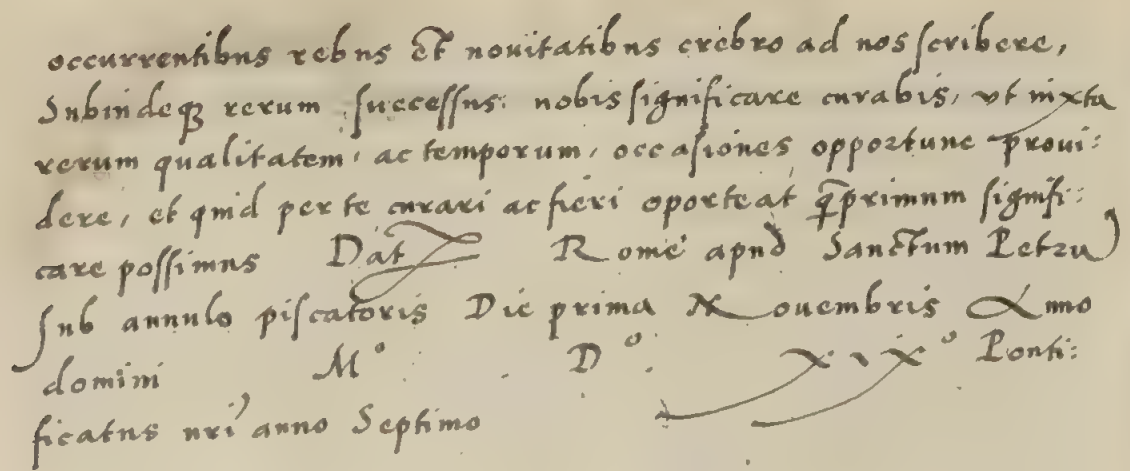 occurrentibus rebus et nouitatibus crebro ad nos scribere,
Subindeqꝫ rerum successus: nobis significare curabis, vt iuxta
rerum qualitatem, ac temporum, occasiones opportune proui:
dere, et quid per te curari ac fieri oporteat q̃primum signifi:
care possimus Dat Rome apud Sanctum Petrũ
sub annulo piscatoris Die prima Nouembris Anno
domini M° D° xix° Ponti:
ficatus nri anno Septimo